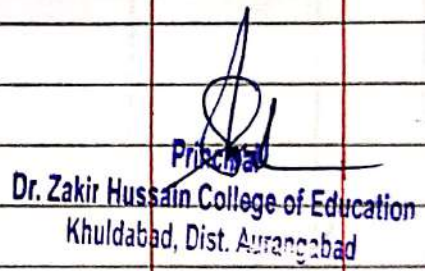 Principal
Dr. Zakir Hussain College of Education
Khuldabad, Dist. Aurangabad